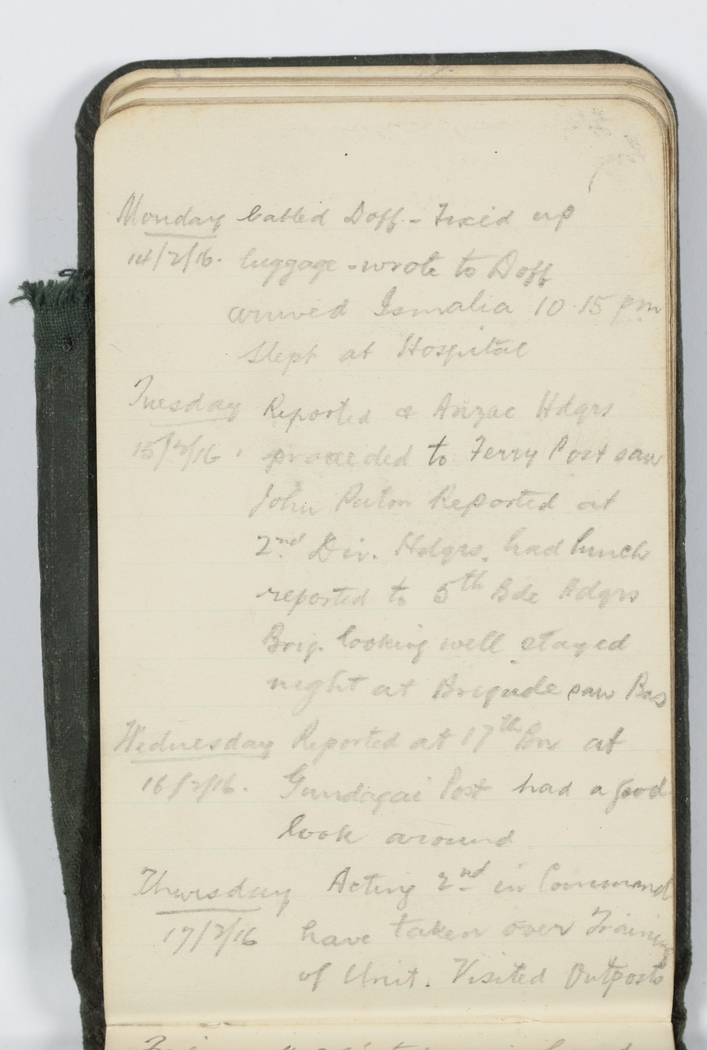 Monday Cabled Doff - Fixed up
14/2/16. luggage - wrote to Doff
arrived Ismalia 10.15 pm
Slept at Hospital
Tuesday Reported @ Anzac Hdqrs
15/2/16. proceeded to Ferry Post saw
John Paton Reported at
2nd Div. Hdqrs. had lunch
reported to 5th Bde Hdqrs
Brig. looking well stayed
night at Brigade saw Bas
Wednesday Reported at 17th Bn at
16/2/16. Gundagai Post had a good
look around
Thursday Acting 2nd in Command
17/2/16 have taken over Training
of Unit. Visited Outposts